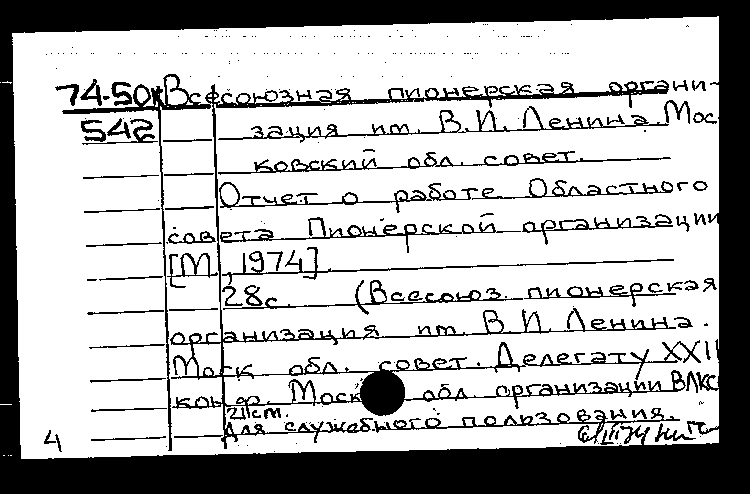 74-50к Всесоюзная пионерская органи-
542 зация им. В.И. Ленина. Мос
ковский обл. совет.
Отчет о работе Областного
совета Пионерской организации
[М., 1974].
28с. (Всесоюз. пионерская
организация им. В.И. Ленина.
Моск обл. совет. Делегату XXII
конф. Моск обл. организации ВЛКС
21см.
Для служебного пользования.
4